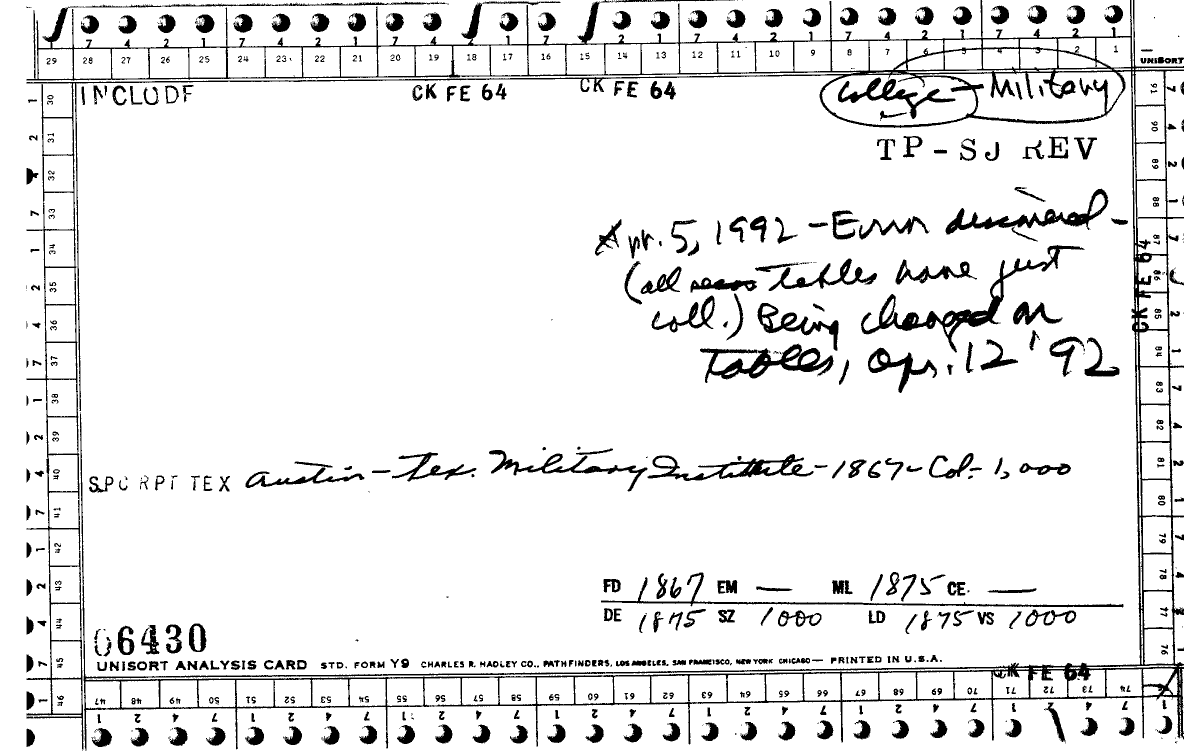 7 4 2 1 7 4 2 1 7 4 2 1 7 4 2 1 7 4 2 1 7 4 2 1
29 28 27 26 25 24 23 22 21 20 19 18 17 16 15 14 13 12 11 10 9 8 7 6 5 4 3 2 1
UNISORT
INCLUDE CK FE 64 CK FE 64 College - Military
TP-SJ REV
Apr. 5, 1992 - Error discovered -
(all tables have just
coll.) Being changed on
tables, Apr. 12 '92
CK FE 64
SPC RPT TEX Austin - Tex. Military Institute - 1867 - Col - 1,000
FD 1867 EM — ML 1875 CE. —
DE 1875 SZ 1000 LD 1875 VS 1000
06430
UNISORT ANALYSIS CARD STD. FORM Y9 CHARLES R. HADLEY CO., PATHFINDERS, LOS ANGELES, SAN FRANCISCO, NEW YORK CHICAGO — PRINTED IN U.S.A.
CK FE 64
47 48 49 50 51 52 53 54 55 56 57 58 59 60 61 62 63 64 65 66 67 68 69 70 71 72 73 74